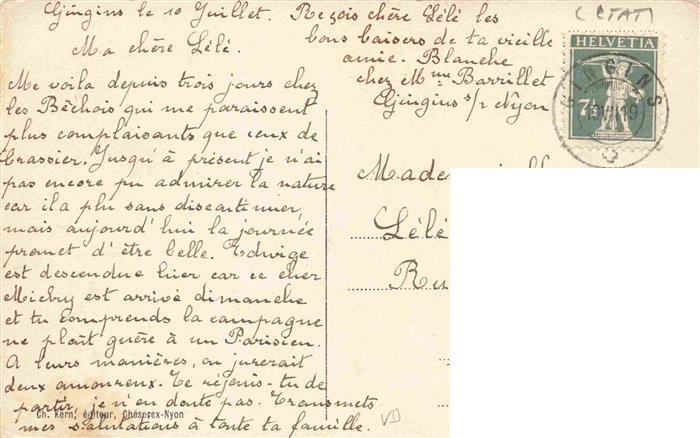 Gingins le 10 Juillet.
Ma chère Lélé.
Me voila depuis trois jours chez
les Béchois qui me paraissent
plus complaisants que ceux de
brassier. Jusqu'à présent je n'ai
pas encore pu admirer la nature
car il a plu sans discontinuer,
mais aujourd'hui la journée
promet d'être belle. Edvige
est descendue hier car ce cher
Michy est arrivé dimanche
et tu comprends la campagne
ne plaît guère à un Parisien.
A leurs manières, on jurerait
deux amoureux. Te réjouis-tu de
partir, je n'en doute pas. Transmets
mes salutations à toute ta famille.
Ch. Kern, éditeur, Chéserex-Nyon
VD
Reçois chère Lélé les
bons baisers de ta vieille
amie. Blanche
chez Mme Barrillet
Gingins s/ Nyon
(ETAT)
HELVETIA
7½
GINGINS
10 VII 19
Lélé